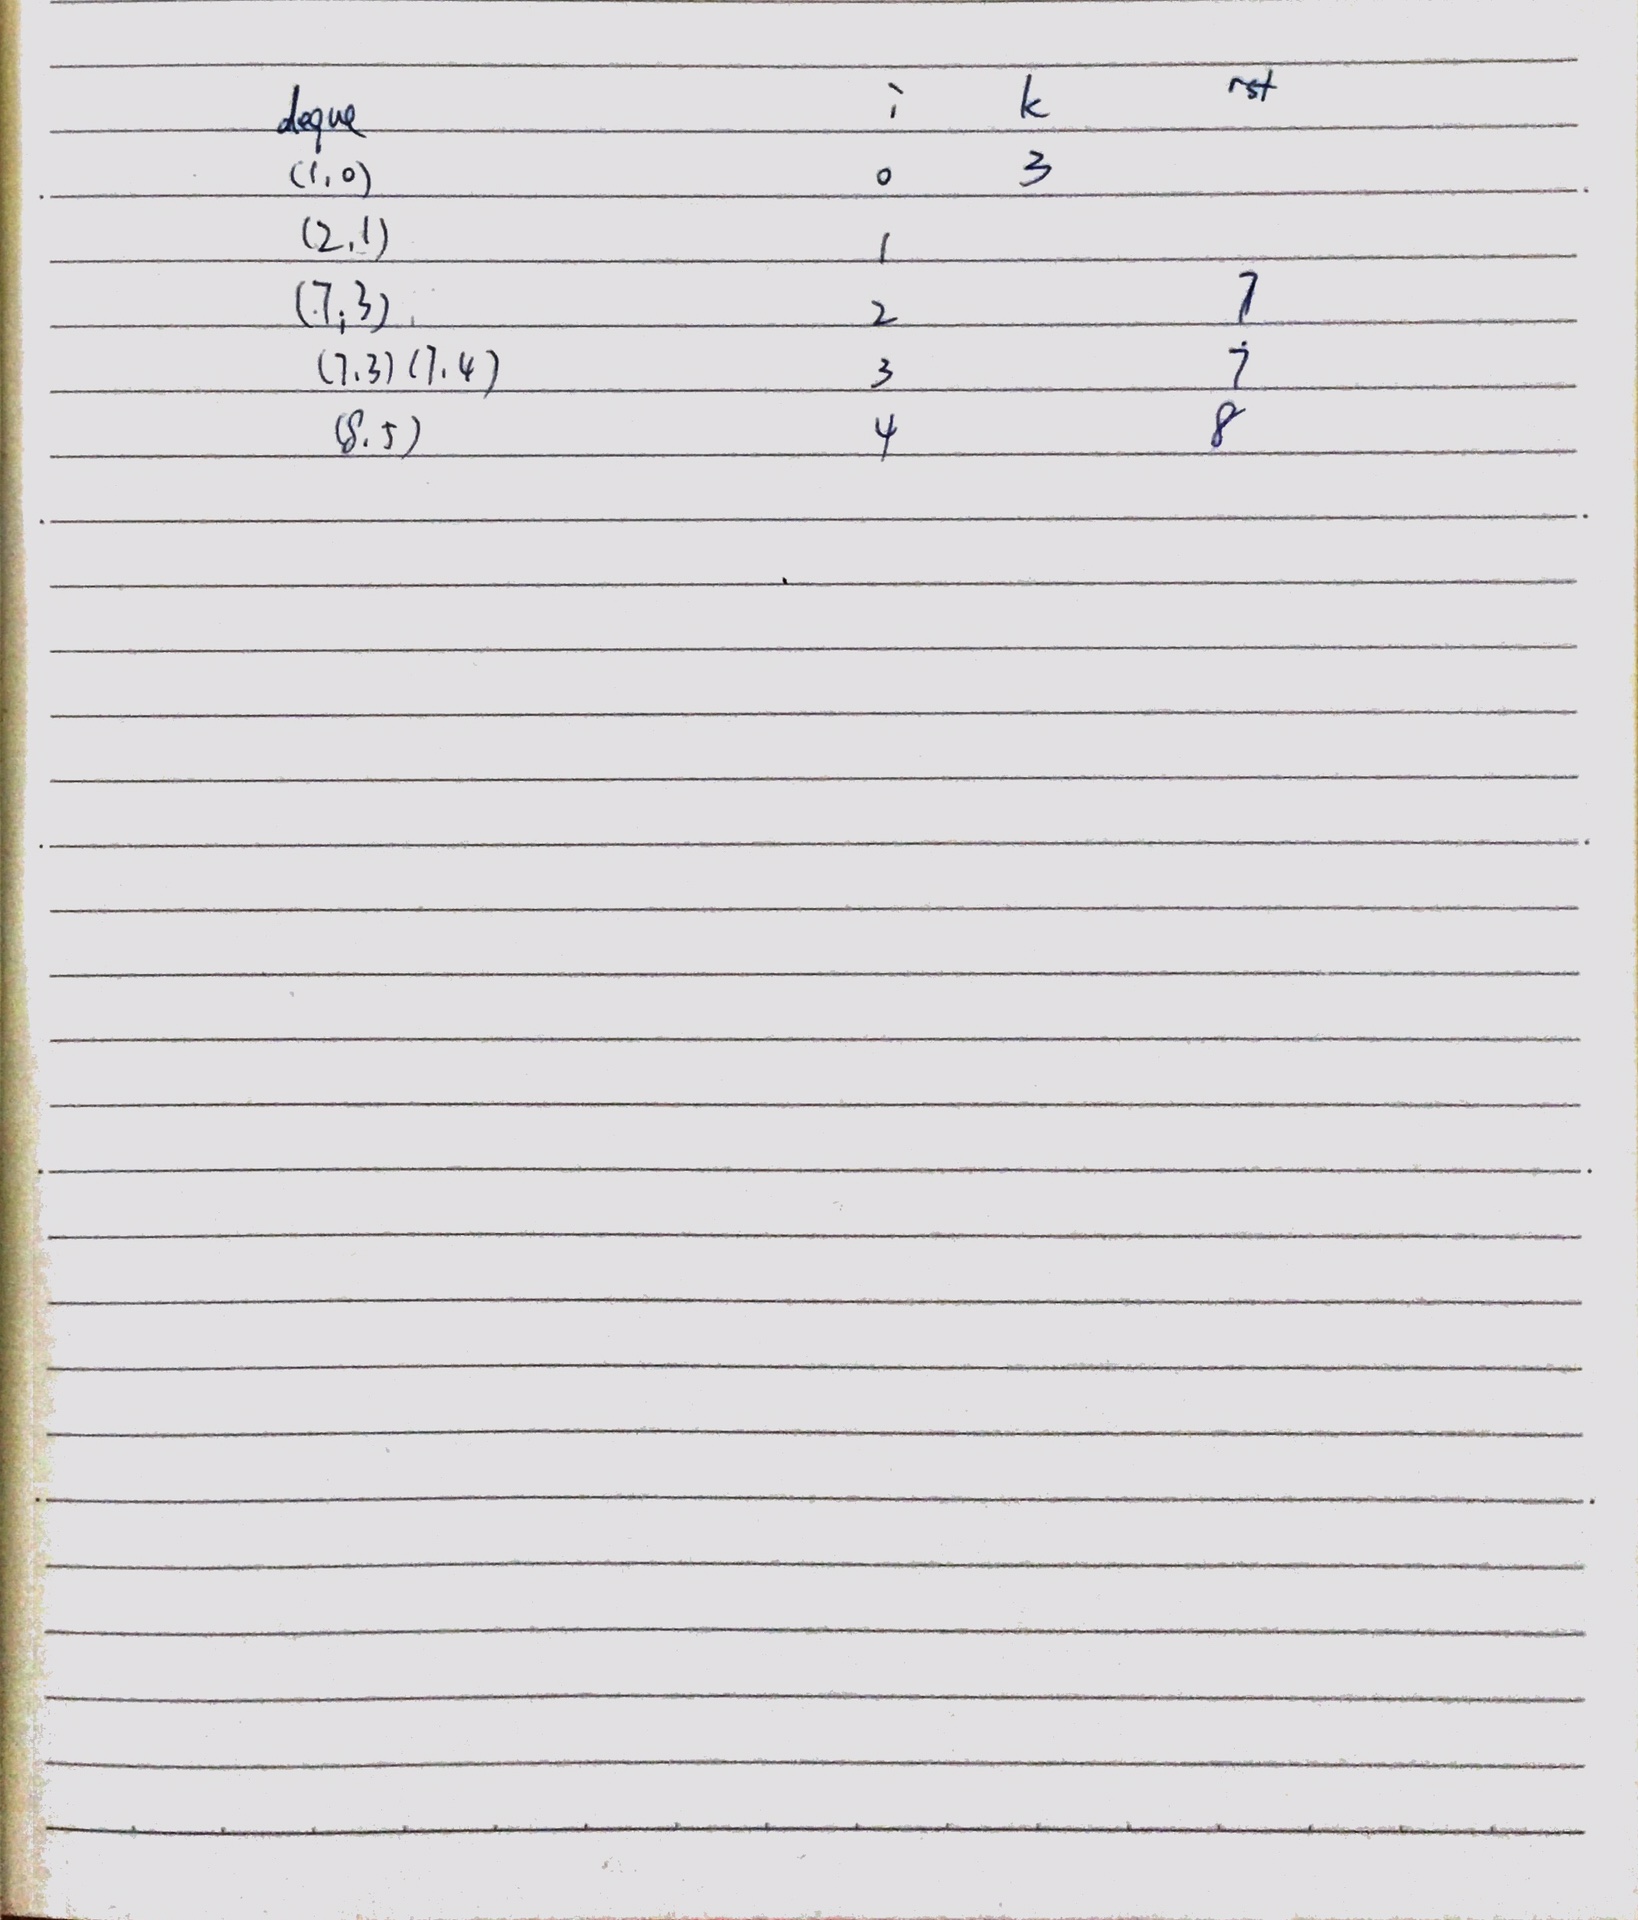 deque i k rst
(1,0) 0 3
(2,1) 1
(7,3) 2 7
(7,3)(7,4) 3 7
(8,5) 4 8